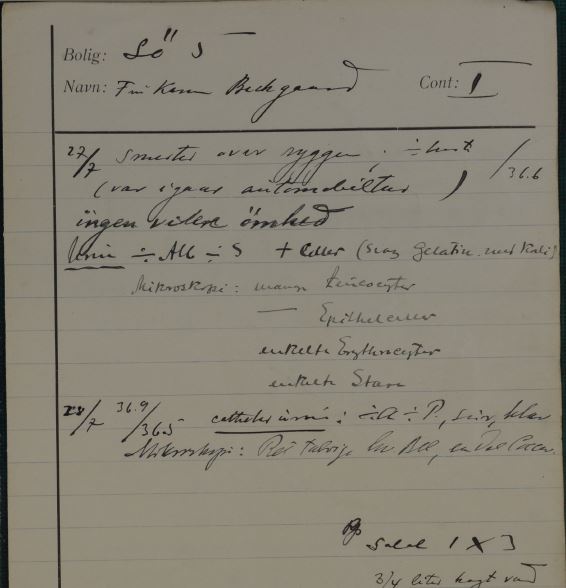 Bolig: Lö 5
Navn: Frk Karen Beckgaard Cont: I
27/7 Smerter over ryggen, ÷ host /36.6
(var igaar automobiltur)
ingen videre ömhed
Urin ÷ Alb ÷ S + Celler (svag Gelatin. med Kali)
Mikroskopi: mange Leucocyter
— Epithelceller
enkelte Erythrocyter
enkelte Stave
28/7 36.9/ /36.5 catheterurin: ÷ A ÷ P., sur, klar
Mikroskopi:
Rp Salol 1 X 3
3/4 liter kogt vand